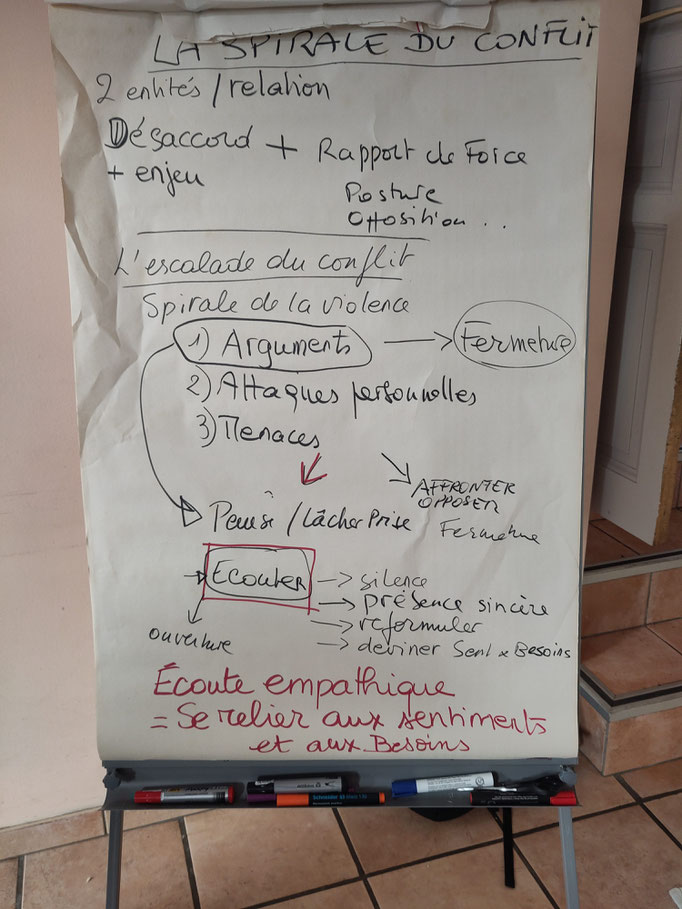 LA SPIRALE DU CONFLIT
2 entités / relation
Désaccord + Rapport de Force
+ enjeu
Posture
opposition . .
L'escalade du conflit
Spirale de la violence
1) Arguments → Fermeture
2) Attaques personnelles
3) Menaces
AFFRONTER
OPPOSER
/ Lâcher Prise
Fermeture
ECOUTER
→ silence
→ présence sincère
→ reformuler
→ deviner Sent & Besoins
ouverture
Écoute empathique
= Se relier aux sentiments
et aux Besoins
Schneider